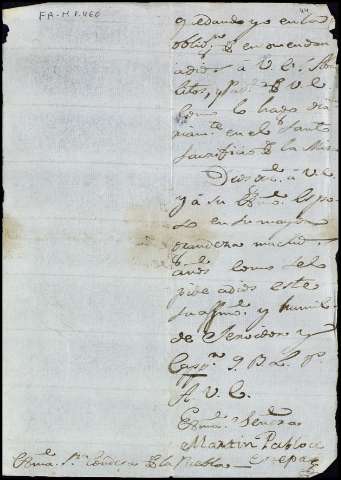 FA-M P.466
44
quedando yo en la
oblig.n de encomendar
a dios á V. E.
y
como lo hago dia
riam.te en el Santo
Sacrificio de la Misa
Dios gu.e á V. E.
y á su Ex.mo Espo
so en su mayor
grandeza much.s
años como se lo
pide a dios este
su affmo. y humil
de Servidor y
Capp.n Q. B. L. P.s
A V. E.
Exma. Señora
Martin Pablo de
Exma. S.ra Condesa de la Puebla